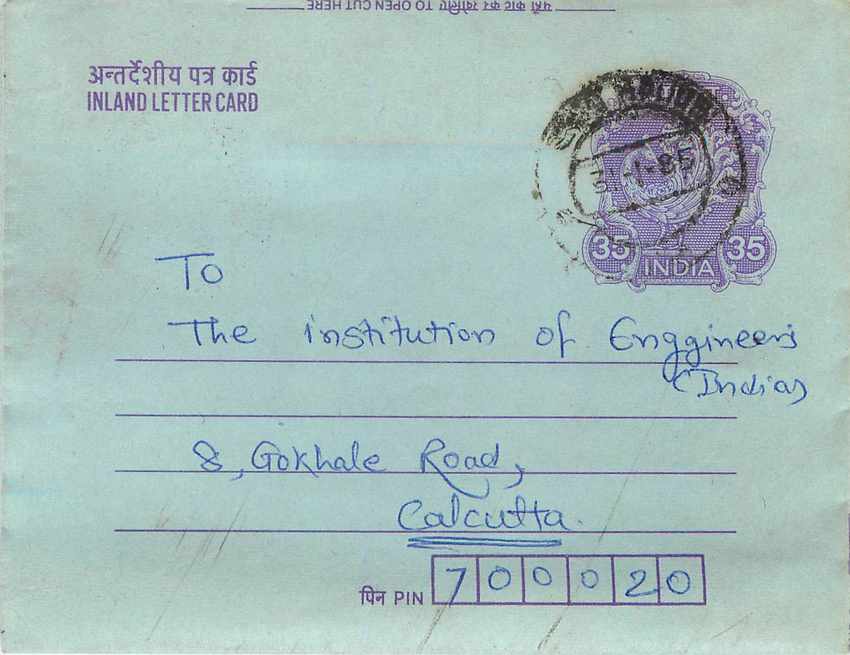 यहाँ काट कर खोलिए TO OPEN CUT HERE
अन्तर्देशीय पत्र कार्ड
INLAND LETTER CARD
35 35
INDIA
To
The institution of Enggineers
(India)
8, Gokhale Road,
Calcutta.
पिन PIN 700020